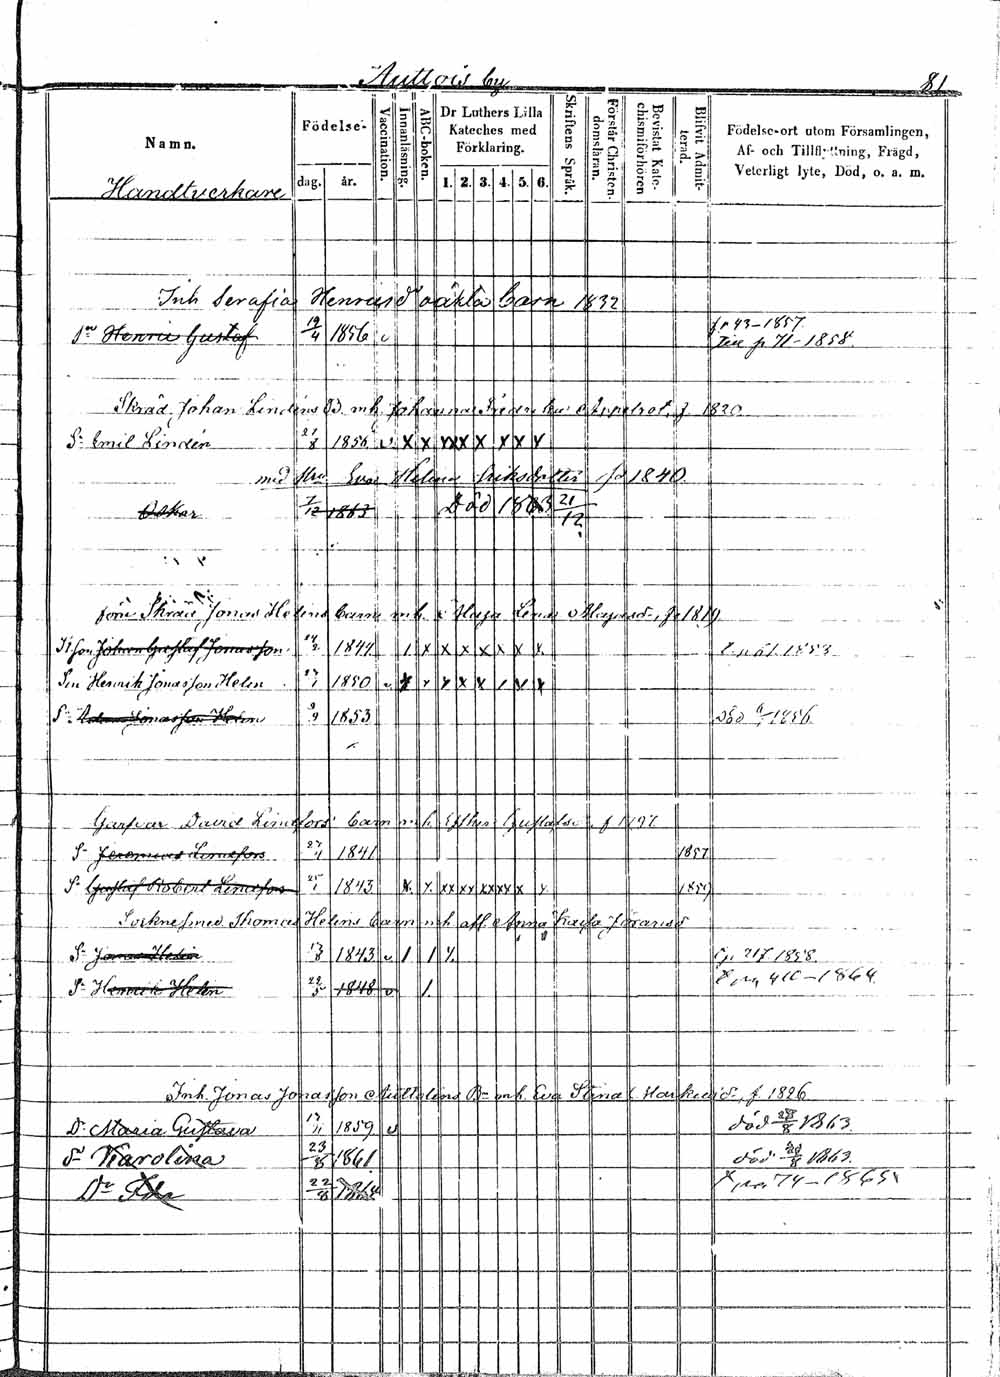 Auttois by
81
Namn.
Födelse-
dag. år.
Vaccination.
Innanläsning.
ABC-boken.
Dr Luthers Lilla
Kateches med
Förklaring.
1. 2. 3. 4. 5. 6.
Skriftens Språk.
Förstår Christen-
domsläran.
Bevistat Kate-
chismiförhören
Blifvit Admit-
terad.
Födelse-ort utom Församlingen,
Af- och Tillflyttning, Frägd,
Veterligt lyte, Död, o. a. m.
Handtverkare
Inh Serafia Henriksd oäkta barn 1832
Sn Henric Gustaf 19/4 1856 v fr 43-1857.
Till p 71-1858.
Skräd. Johan Lindéns B. mh. Johanna Fredrika Appelrot, f. 1820
S. Emil Lindén 21/8 1856 v x x x x x x x x x
med Hru Eva Helena Eriksdotter fd 1840.
Oskar 7/12 1863 Död 1863 21/12
förre Skräd. Jonas Helins barn mh. Maja Lena Mapsd., f. 1819
Johan Gustaf Jonasson 14/2 1844 1 x x x x x x x 1853
Sn Henrik Jonasson Helin 27/1 1850 v x x x x x x x
S. Adam Jonasson Helin 9/9 1853 död 1856
Garfvar David Limefors' barn mh.
S. Jeremias Limefors 27/11 1841 1857
S. Gustaf Robert Limefors 25/1 1843 x x x x x x x x x x x 1859
Socknesmed Thomas Helins barn mh. afl. Anna Kajsa Göransd
S. Jonas Helin 13/8 1843 v 1 1 x p. 217 1858.
S. Henrik Helin 22/5 1848 v 1. 410-1864.
Inh. Jonas Jonasson Auttolins Bn mh. Eva Stina Markusd., f. 1826
D. Maria Gustava 13/11 1859 v död 28/8 1863.
D. Karolina 23/8 1861 död 20/8 1863.
Dr Ida 22/8 1864 74-1865